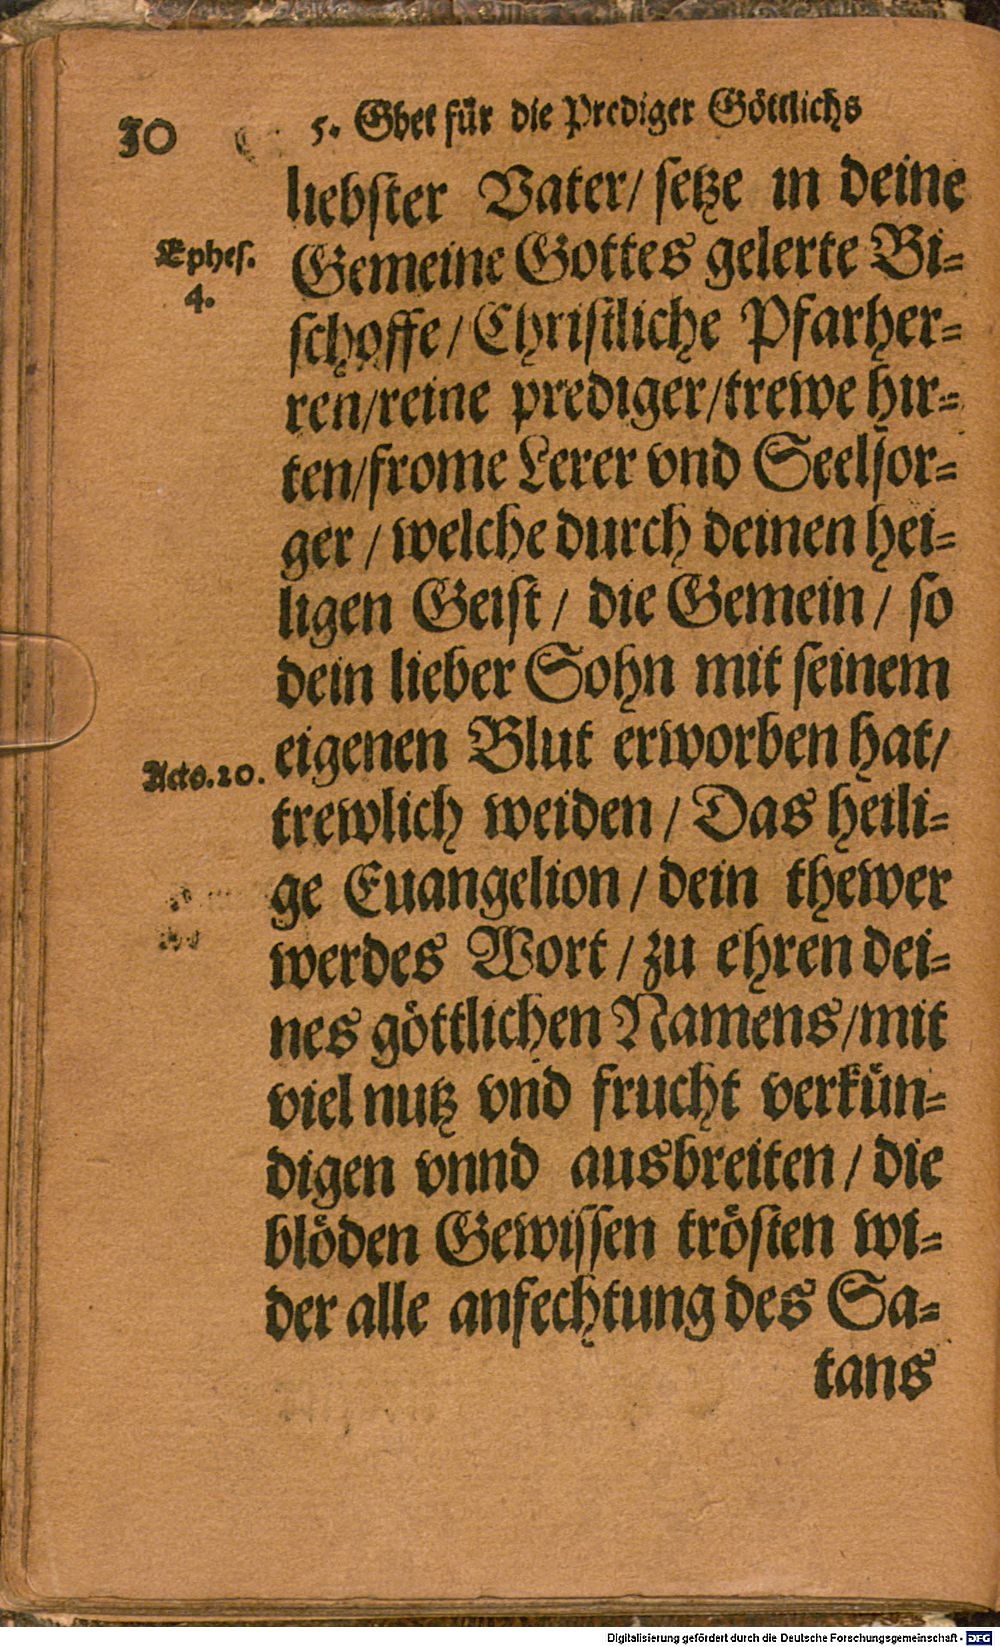 30
5. Gbet für die Prediger Göttlichs
liebster Vater/ setze in deine
Ephes.
4.
Gemeine Gottes gelerte Bi-
schoffe/ Christliche Pfarher-
ren/reine prediger/trewe hir-
ten/frome Lerer vnd Seelsor-
ger / welche durch deinen hei-
ligen Geist/ die Gemein/ so
dein lieber Sohn mit seinem
eigenen Blut erworben hat/
Acto.20.
trewlich weiden / Das heili-
ge Euangelion / dein thewer
werdes Wort / zu ehren dei-
nes göttlichen Namens/mit
viel nutz vnd frucht verkün-
digen vnnd ausbreiten / die
blöden Gewissen trösten wi-
der alle anfechtung des Sa-
tans
Digitalisierung gefördert durch die Deutsche Forschungsgemeinschaft - DFG